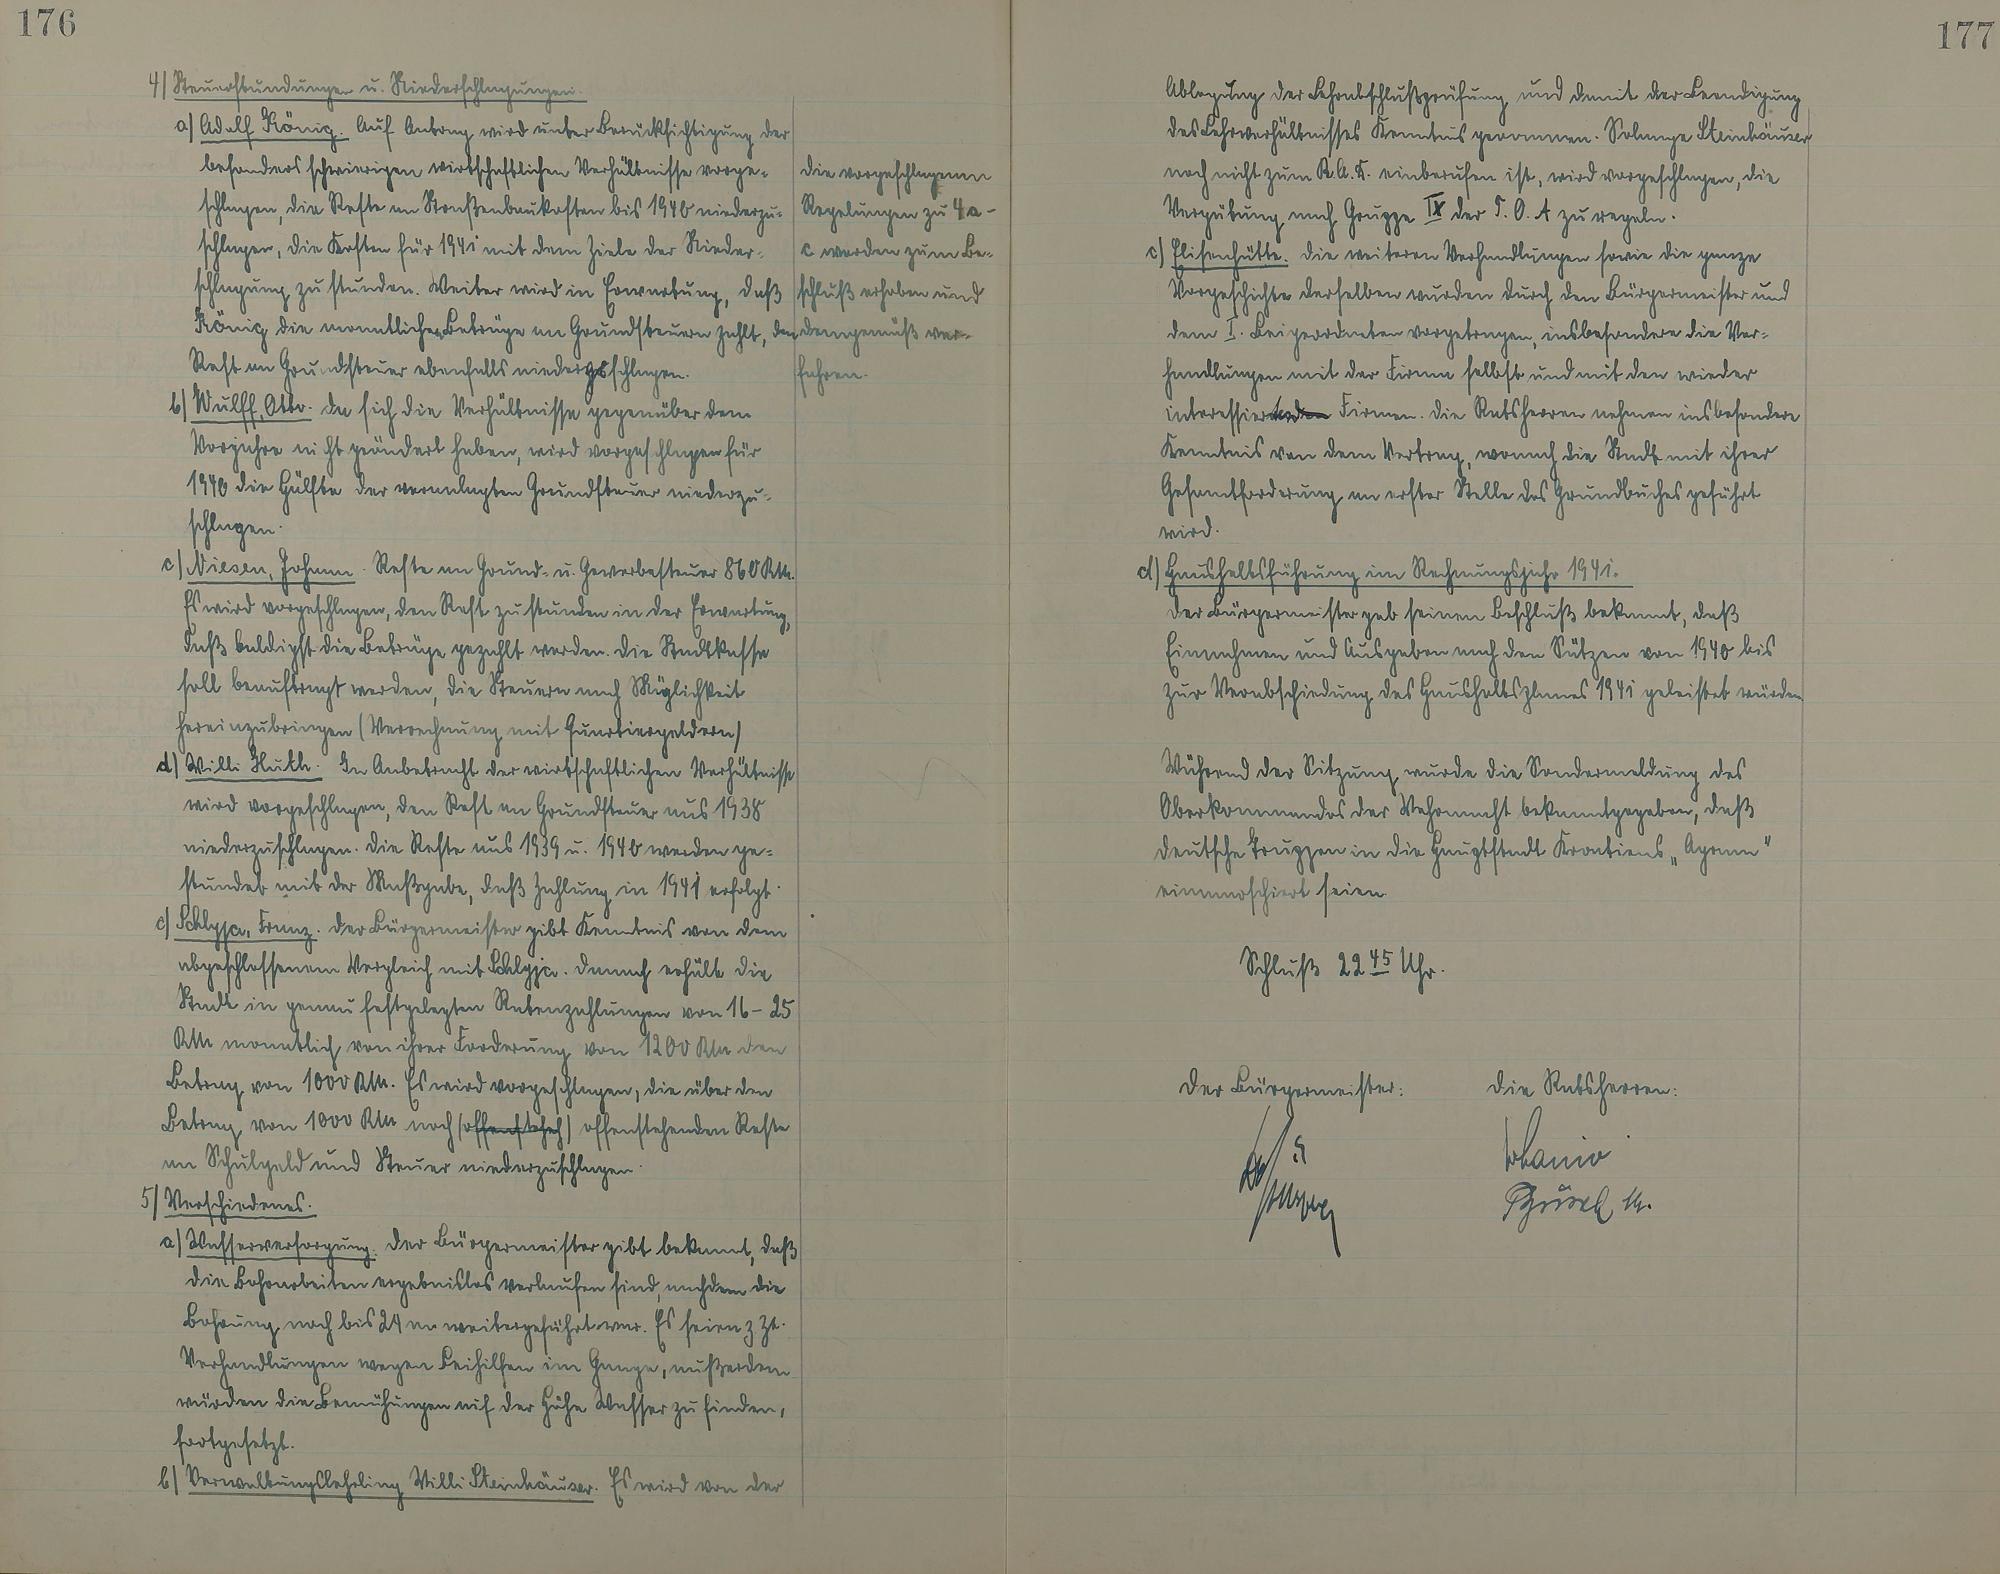 176
4) Steuerstundungen u. Niederschlagungen.
a) Adolf König. Auf Antrag wird unter Berücksichtigung der
besonders schwierigen wirtschaftlichen Verhältnisse vorge-
schlagen, die Reste an Straßenbaukosten bis 1940 niederzu-
schlagen, die Kosten für 1941 mit dem Ziele der Nieder-
schlagung zu stunden. Weiter wird in Erwartung, daß
König die monatlichen Beträge an Grundsteuern zahlt, den
Rest an Grundsteuer ebenfalls niederzuschlagen.
b) Wulff, Otto. Da sich die Verhältnisse gegenüber dem
Vorjahre nicht geändert haben, wird vorgeschlagen für
1940 die Hälfte der veranlagten Grundsteuer niederzu-
schlagen.
c) Niesen, Johann. Reste an Grund- u. Gewerbesteuer 860 RM.
Es wird vorgeschlagen, den Rest zu stunden in der Erwartung,
daß baldigst die Beträge gezahlt werden. Die Stadtkasse
soll beauftragt werden, die Steuern nach Möglichkeit
hereinzubringen (Verrechnung mit Quartiergeldern)
d) Willi Huth. In Anbetracht der wirtschaftlichen Verhältnisse
wird vorgeschlagen, den Rest an Grundsteuer aus 1938
niederzuschlagen. Die Reste aus 1939 u. 1940 werden ge-
stundet mit der Maßgabe, daß Zahlung in 1941 erfolgt.
e) Schlyja, Franz. Der Bürgermeister gibt Kenntnis von dem
abgeschlossenem Vergleich mit Schlyja. Danach erhält die
Stadt in genau festgelegten Ratenzahlungen von 16 - 25
RM monatlich von ihrer Forderung von 1200 RM den
Betrag von 1000 RM. Es wird vorgeschlagen, die über den
Betrag von 1000 RM noch (offensteheh) offenstehenden Reste
an Schulgeld und Steuer niederzuschlagen.
5) Verschiedenes.
a) Wasserversorgung. Der Bürgermeister gibt bekannt, daß
die Bohrarbeiten ergebnislos verlaufen sind, nachdem die
Bohrung noch bis 24 m weitergeführt war. Es seien z Zt.
Verhandlungen wegen Beihilfen im Gange, außerdem
würden die Bemühungen auf der Höhe Wasser zu finden,
fortgesetzt.
b) Verwaltungslehrling Willi Steinhäuser. Es wird von der
die vorgeschlagenen
Regelungen zu 4a -
c werden zum Be-
schluß erhoben und
demgemäß ver-
fahren.
177
Ablegung der Lehrabschlußprüfung und damit der Beendigung
des Lehrverhältnisses Kenntnis genommen. Solange Steinhäuser
noch nicht zum R.A.D. einberufen ist, wird vorgeschlagen, die
Vergütung nach Gruppe IX der T. O. A zu regeln.
c) Elisenhütte. Die weiteren Verhandlungen sowie die ganze
Vorgeschichte derselben wurden durch den Bürgermeister und
dem I. Beigeordneten vorgetragen, insbesondere die Ver-
handlungen mit der Firma selbst und mit den wieder
interessierten Firmen. Die Ratsherren nehmen insbesondere
Kenntnis von dem Vertrag, wonach die Stadt mit ihrer
Gesamtforderung an erster Stelle des Grundbuches geführt
wird.
d) Haushaltsführung im Rechnungsjahr 1941.
Der Bürgermeister gab seinen Beschluß bekannt, daß
Einnahmen und Ausgaben nach den Sätzen von 1940 bis
zur Verabschiedung des Haushaltsplanes 1941 geleistet würden
Während der Sitzung wurde die Sondermeldung des
Oberkommandos der Wehrmacht bekanntgegeben, daß
deutsche Truppen in die Hauptstadt Kroatiens „Agram"
einmarschiert seien.
Schluß 22 45 Uhr.
Der Bürgermeister: Die Ratsherren: